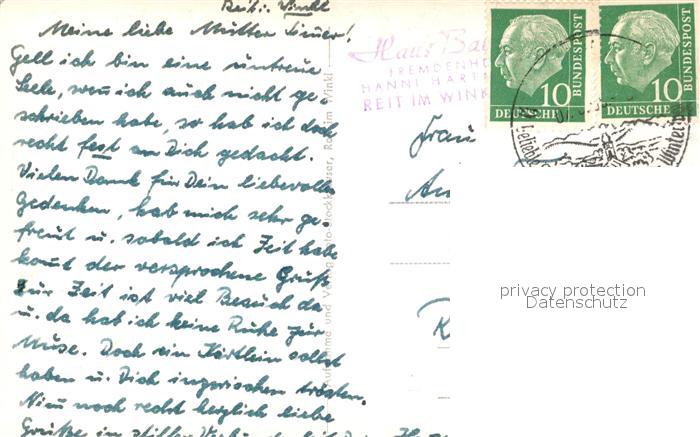 Reit i. Winkl
Meine liebe Mutter
Gell ich bin eine untreue
Seele, wenn ich auch nicht ge-
schrieben habe, so hab ich doch
recht fest an Dich gedacht.
Vielen Dank für Dein liebevolles
Gedenken, hab mich sehr ge-
freut u. sobald ich Zeit habe
kommt der versprochene Gruß.
Zur Zeit ist viel Besuch da
u. da hab ich keine Ruhe zur
Muse. Doch ein Kärtlein sollst
haben u. Dich inzwischen trösten.
Nimm noch recht herzlich liebe
Grüße in stiller
Aufnahme und Verlag
Reit im Winkl
Haus
FREMDENH
HANNI HART
REIT IM WINK
10
DEUTSCHE
BUNDESPOST
10
DEUTSCHE
BUNDESPOST
Frau
R
privacy protection
Datenschutz